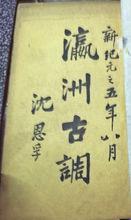 新纪元之五年八月
瀛洲古調
沈恩孚